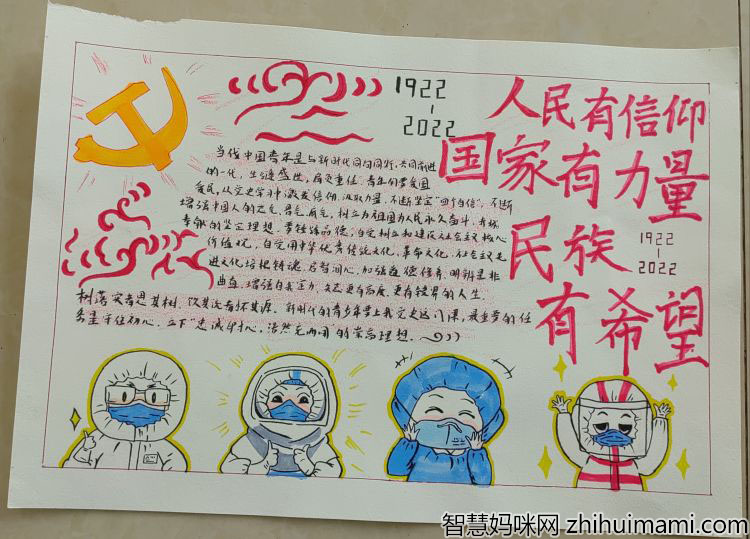 1922
-
2022
人民有信仰
国家有力量
民族
有希望
1922
-
2022
当代中国青年是与新时代同向同行、共同前进
的一代，生逢盛世，肩负重任。青年们要爱国
爱民，从党史学习中激发信仰、汲取力量，不断坚定“四个自信”，不断
增强中国人的志气、骨气、底气，树立为祖国为人民永久奋斗、赤诚
奉献的坚定理想。要锤炼品德，自觉树立和践行社会主义核心
价值观，自觉用中华优秀传统文化、革命文化、社会主义先
进文化培根铸魂、启智润心，加强道德修养，明辨是非
曲直，增强自我定力，矢志更有高度、更有境界的人生。
树落实者思其树，饮其流者怀其源。新时代的青少年要上我党史这门课，最重要的任
务是守住初心，立下“忠诚
的崇高理想。
智慧妈咪网 zhihuimami.com